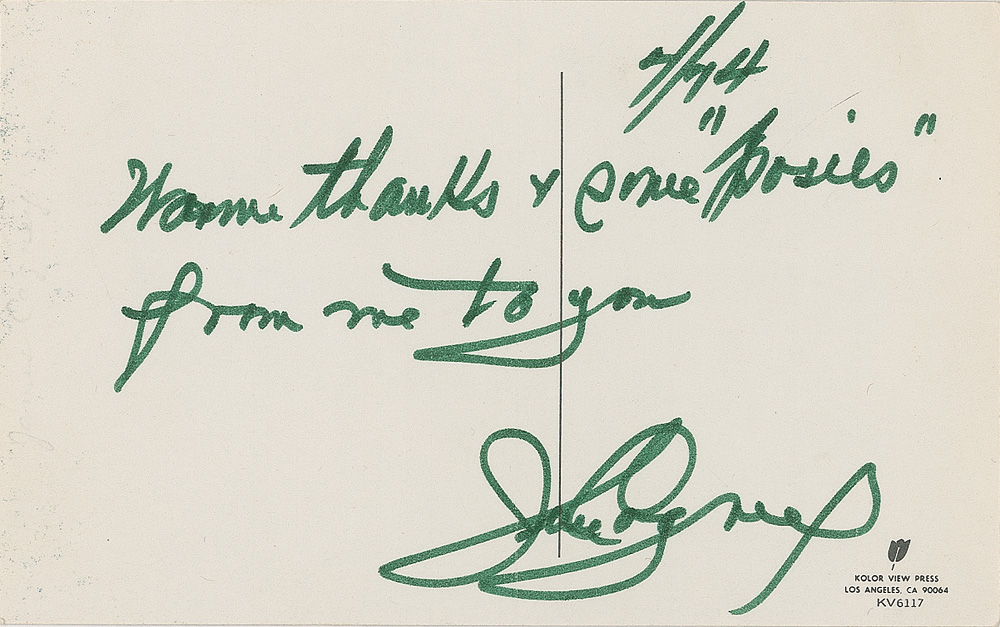 4/74
Warm thanks & some "posies"
from me to you
KOLOR VIEW PRESS
LOS ANGELES, CA 90064
KV6117